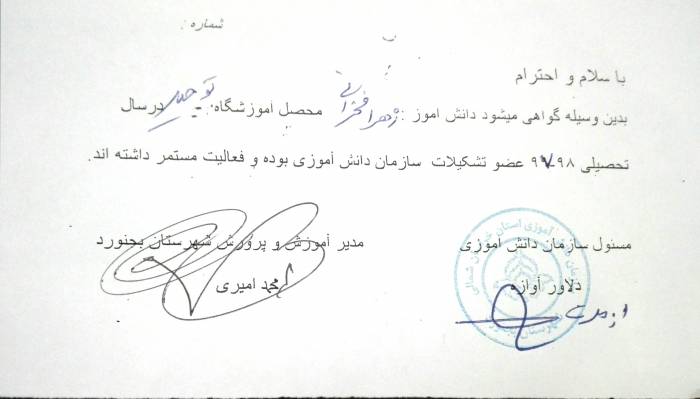 شماره :
با سلام و احترام
بدین وسیله گواهی میشود دانش اموز : زهرا فخرانی محصل آموزشگاه: توحید درسال
تحصیلی ۹۸-۹۷ عضو تشکیلات سازمان دانش آموزی بوده و فعالیت مستمر داشته اند.
مسئول سازمان دانش آموزی
مدیر آموزش و پرورش شهرستان بجنورد
دلاور آوازه
محمد امیری